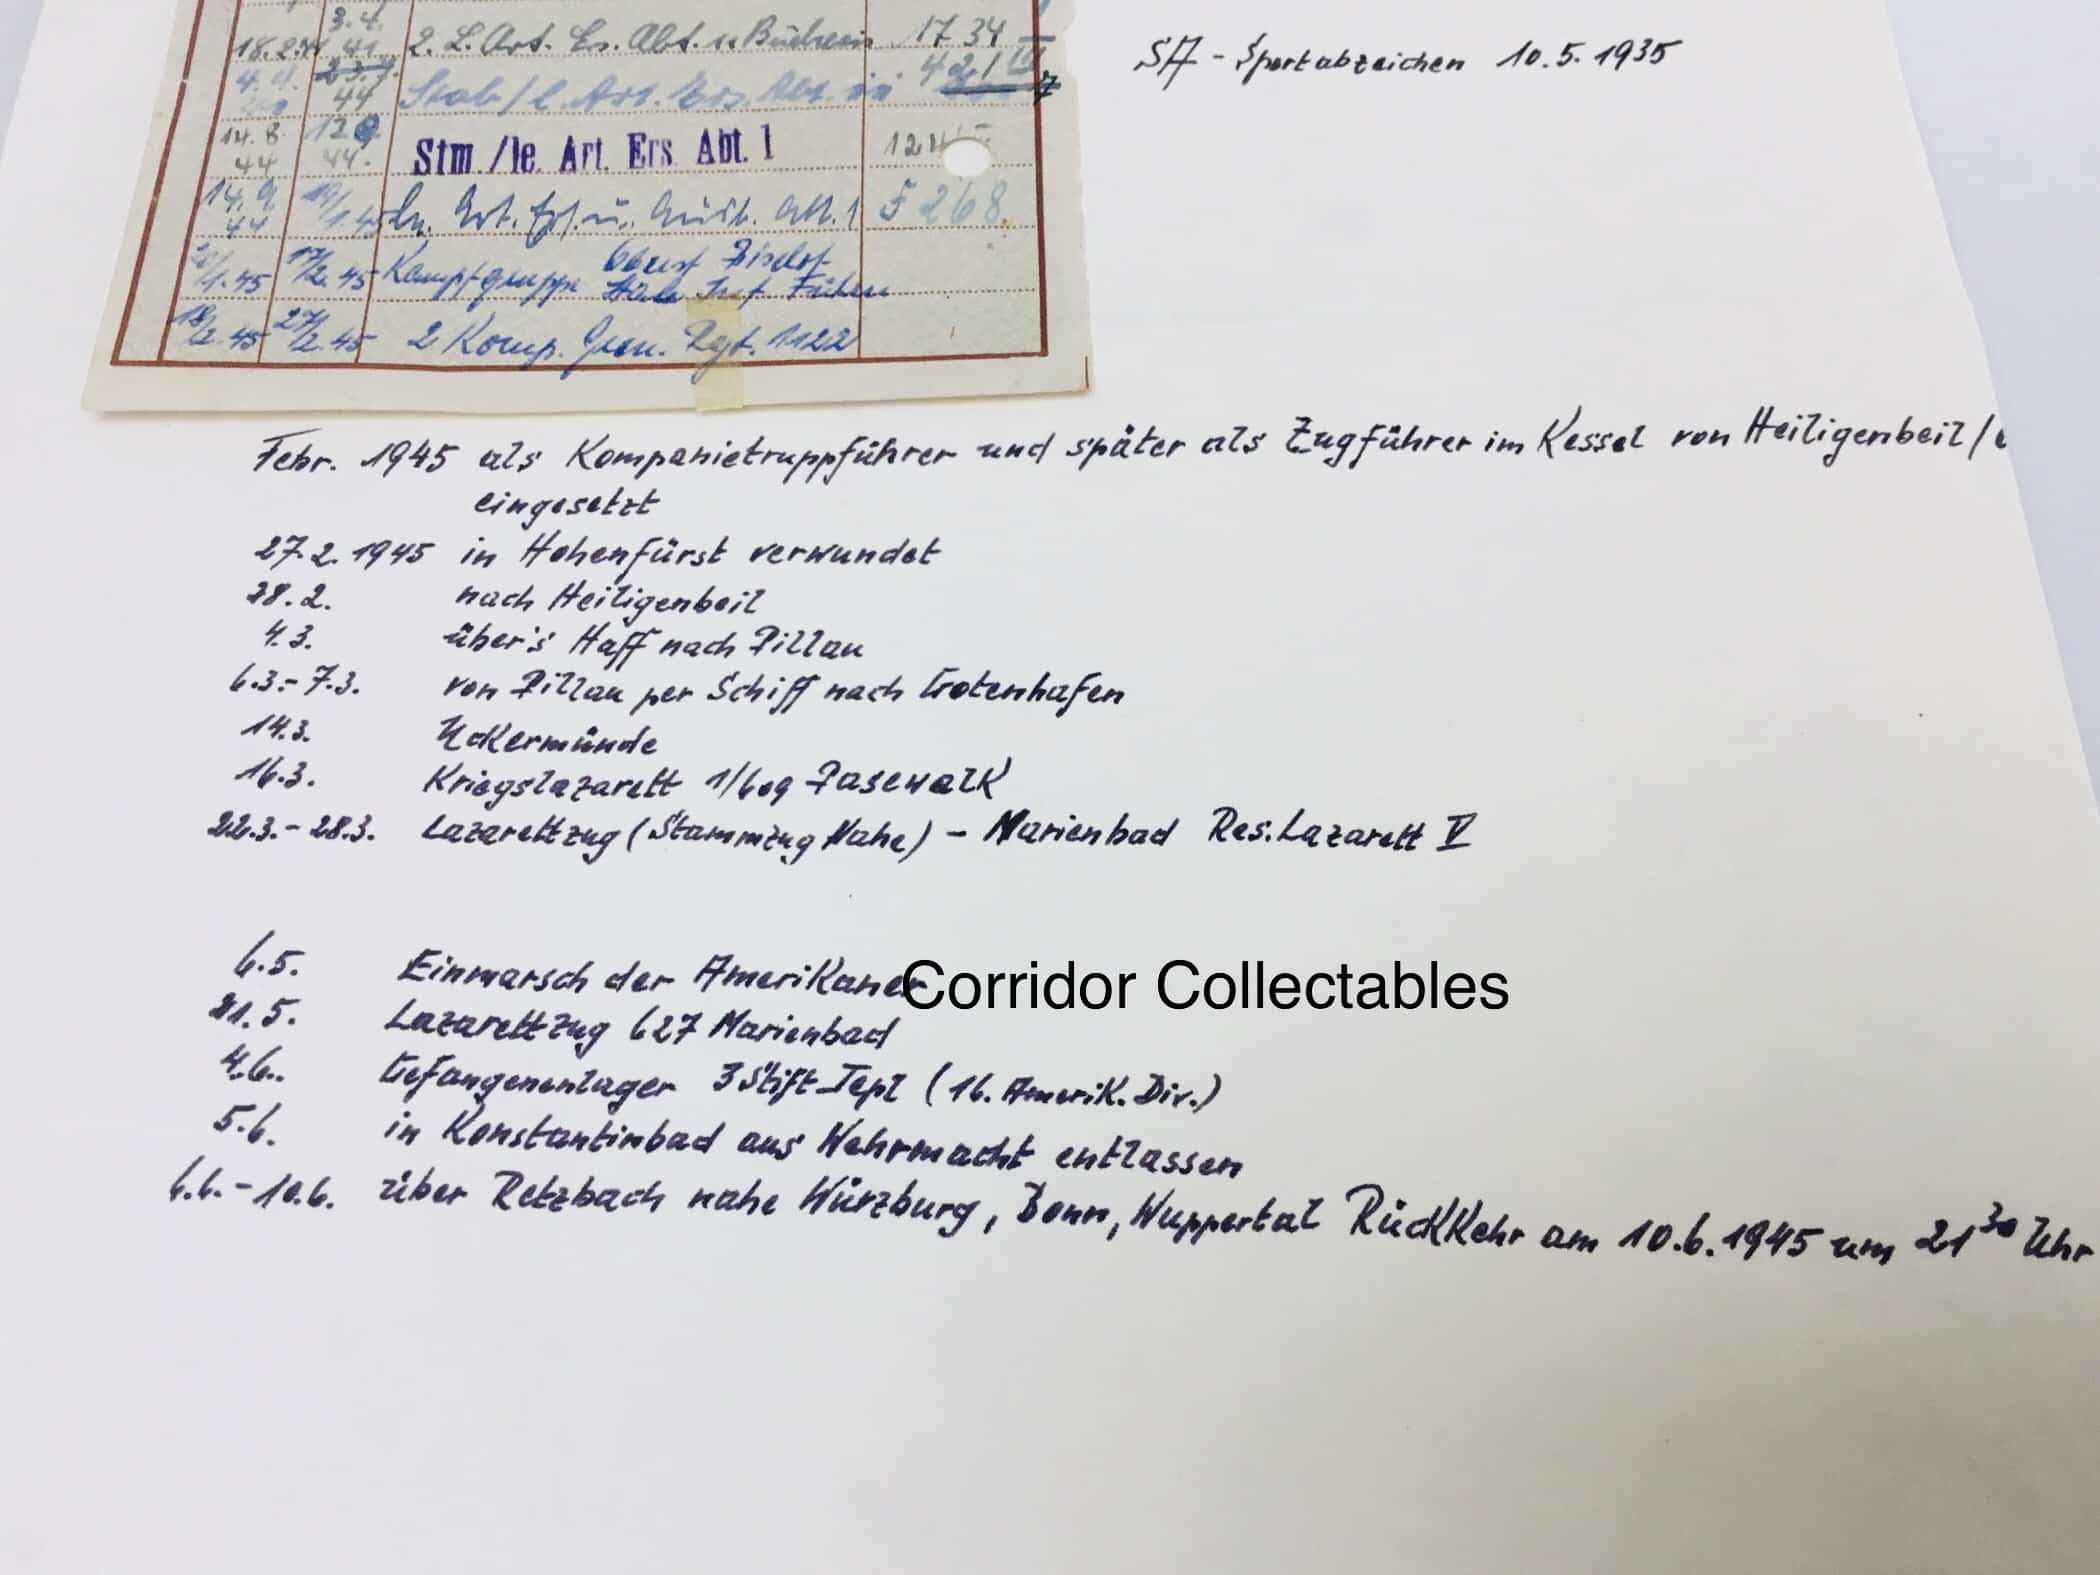 3.4.
18.2.44 41 2. L. Art. Ers. Abt. 1734
4.4. 23.7. 44 Stab / l. Art. Ers. Abt. 421
14.8. 44 12.9. 44. Stm /le. Art. Ers. Abt. 1
14.9. 44 19/1.45 Art. Ers. u. Ausb. Abt. 1 5268
1.45 17/2.45 Kampfgruppe Oberst
18/2.45 27/2.45 2 Komp. Gren. Rgt. 1122
SA - Sportabzeichen 10.5.1935
Febr. 1945 als Kompanietruppführer und später als Zugführer im Kessel von Heiligenbeil/
eingesetzt
27.2.1945 in Hohenfürst verwundet
28.2. nach Heiligenbeil
4.3. über's Haff nach Pillau
6.3.- 7.3. von Pillau per Schiff nach Gotenhafen
14.3. Uckermünde
16.3. Kriegslazarett 1/609 Pasewalk
22.3.- 28.3. Lazarettzug (Stammzug Nahe) - Marienbad Res. Lazarett V
6.5. Einmarsch der Amerikaner
Corridor Collectables
21.5. Lazarettzug 627 Marienbad
4.6. Gefangenenlager 3 Stift Tepl (16. Amerik. Div.)
5.6. in Konstantinbad aus Wehrmacht entlassen
6.6.- 10.6. über Retzbach nahe Würzburg, Bonn, Wuppertal Rückkehr am 10.6.1945 um 21³⁰ Uhr